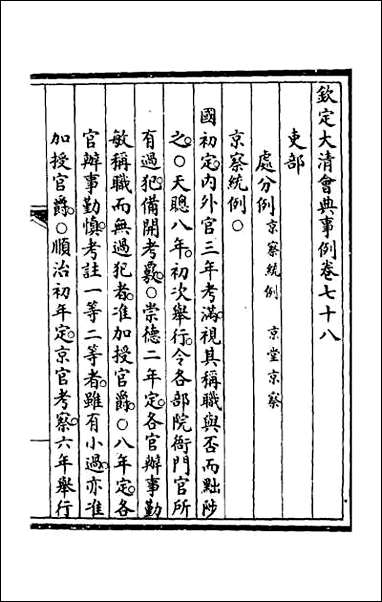 欽定大清會典事例卷七十八
吏部
處分例 京察統例 京堂京察
京察統例〇
國初定內外官三年考滿視其稱職與否而黜陟
之〇天聰八年初次舉行令各部院衙門官所
有過犯備開考覈〇崇德二年定各官辦事勤
敏稱職而無過犯者准加授官爵〇八年定各
官辦事勤慎考註一等二等者雖有小過亦准
加授官爵〇順治初年定京官考察六年舉行